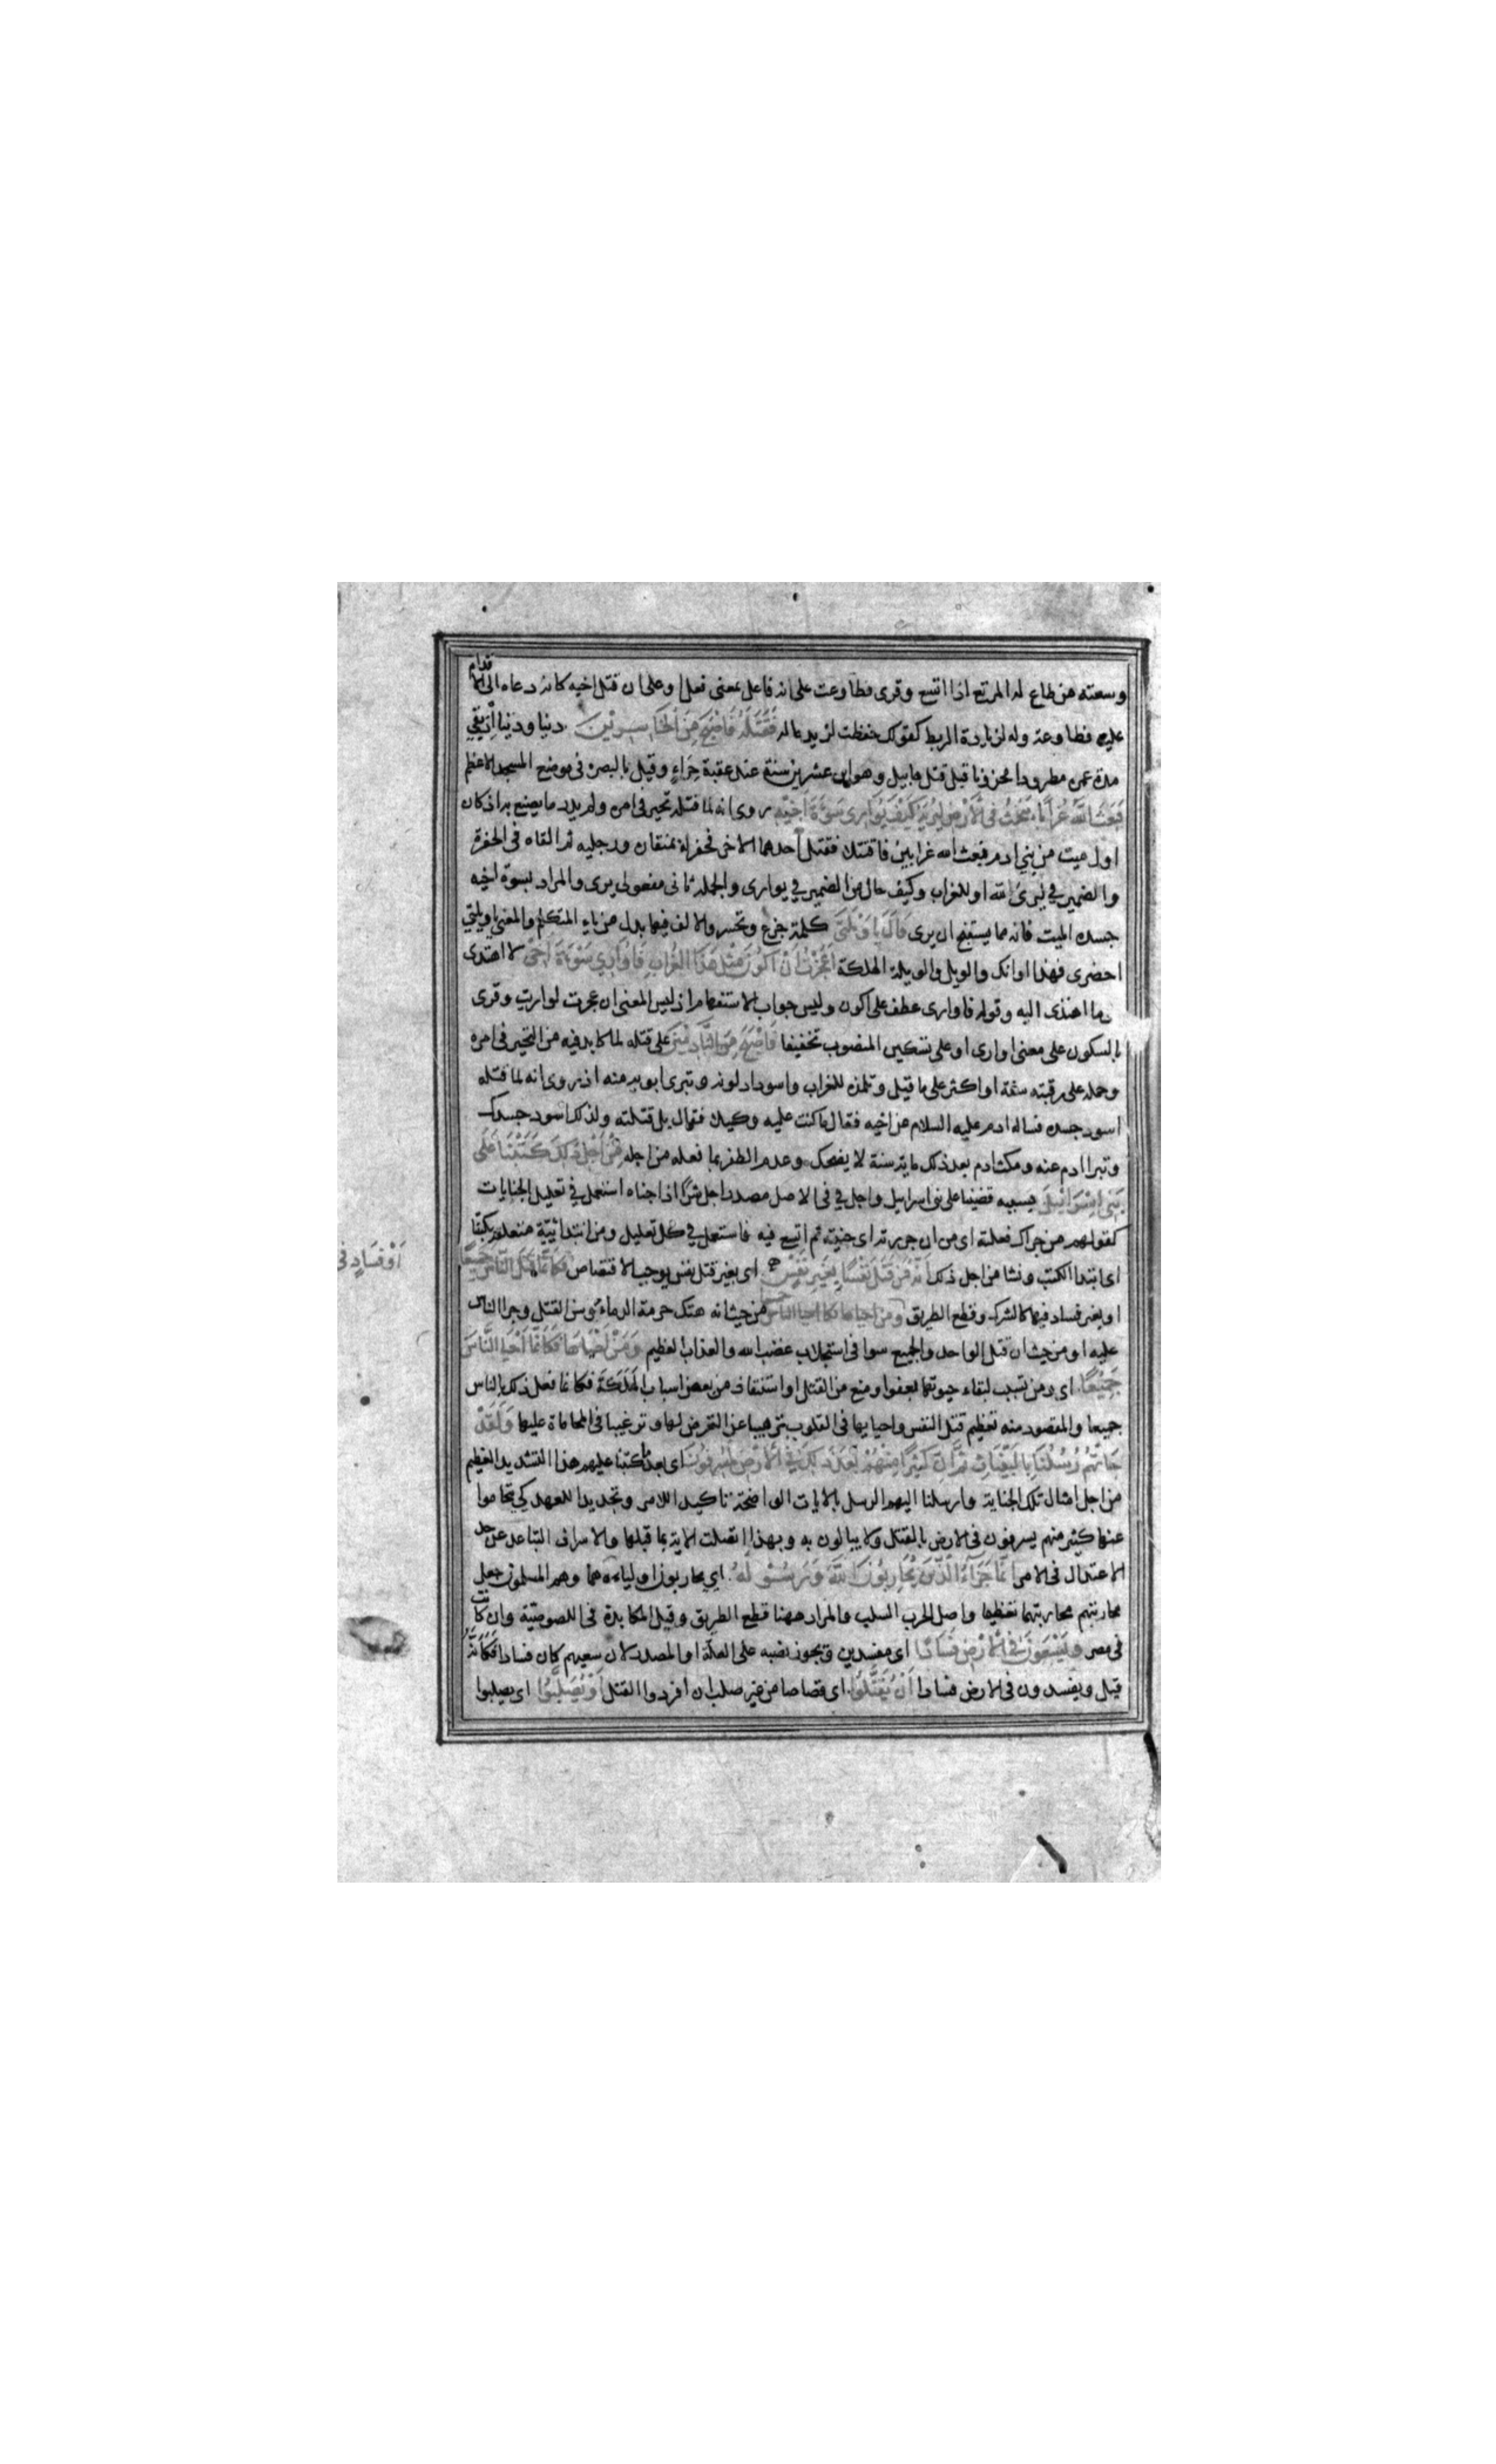 وسعته من طاع له المرتع اذا اتسع وقرى فطاوعت على انه فاعل بمعنى فعل او على ان قتل اخيه كانه دعاه الى الاقدام
عليه فطاوعته وله لزيادة الربط كقولك حفظت لزيد ماله فَقَتَلَهُ فَاَصْبَحَ مِنَ الْخَاسِرِيْنَ دينا ودنيا اذ بقي
مدة عمره مطرودا محزونا قيل قتل هابيل وهو ابن عشرين سنة عند عقبة حِرَاءٍ وقيل بالبصره فى موضع المسجد الاعظم
فَبَعَثَ اللّٰهُ غُرَابًا يَبْحَثُ فِى الْاَرْضِ لِيُرِيَهُ كَيْفَ يُوَارِى سَوْءَةَ اَخِيْهِ روى انه لما قتله تحير فى امره ولم يدر ما يصنع به اذ كان
اول ميت من بني ادم فبعث الله غرابين فاقتتلا فقتل احدهما الاخر فحفر له بمنقاره ورجليه ثم القاه فى الحفرة
والضمير في ليرى لله او للغراب وكيف حال من الضمير في يوارى والجملة ثانى مفعولى يرى والمراد بسوءة اخيه
جسده الميت فانه مما يستقبح ان يرى قَالَ يَا وَيْلَتَى كلمة جزع وتحسر والالف فيها بدل من ياء المتكلم والمعنى يا ويلتي
احضرى فهذا اوانك والويل والويلة الهلكة اَعَجَزْتُ اَنْ اَكُوْنَ مِثْلَ هٰذَا الْغُرَابِ فَاُوَارِيَ سَوْءَةَ اَخِى لا اهتدى
ما اهتدى اليه وقوله فاوارى عطف على اكون وليس جواب الاستفهام اذ ليس المعنى ان عجزت لواريت وقرى
بالسكون على معنى اوارى او على تسكين المنصوب تخفيفا فَاَصْبَحَ مِنَ النَّادِمِيْنَ على قتله لما كابد فيه من التحير فى امره
وحمله على رقبته سنة او اكثر على ما قيل وتلمذه للغراب واسوداد لونه وتبرى ابويه منه اذ روى انه لما قتله
اسود جسده فساله ادم عليه السلام عن اخيه فقال ما كنت عليه وكيلا فقال بل قتلته ولذلك اسود جسدك
وتبرا ادم عنه ومكث ادم بعد ذلك ماية سنة لا يضحك وعدم الظفر بما فعله من اجله مِنْ اَجْلِ ذٰلِكَ كَتَبْنَا عَلٰى
بَنِى اِسْرَائِيْلَ بسببه قضينا على بنى اسرايل واجل في فى الاصل مصدر اجل شرًّا اذا جناه استعمل في تعليل الجنايات
كقولهم من جراك فعلته اى من ان جررته اى جنيته ثم اتسع فيه فاستعمل في كل تعليل ومن ابتدائية متعلقة بكتبنا
اى ابتدا الكتب ونشا من اجل ذلك اَنَّهُ مَنْ قَتَلَ نَفْسًا بِغَيْرِ نَفْسٍ اى بغير قتل نفس يوجب الاقتصاص فَكَاَنَّمَا قَتَلَ النَّاسَ جَمِيْعًا
اَوْ فَسَادٍ فى
او بغير فساد فيها كالشرك وقطع الطريق ومن احياها فكانما احيا الناس جميعا من حيث انه هتك حرمة الدماء وسن القتل وجرا الناس
عليه او من حيث ان قتل الواحد والجميع سوا فى استجلاب غضب الله والعذاب العظيم وَمَنْ اَحْيَاهَا فَكَاَنَّمَا اَحْيَا النَّاسَ
جَمِيْعًا اى ومن تسبب لبقاء حيوتها بعفو او منع من القتل او استنقاذ من بعض اسباب الهلكة فكانما فعل ذلك بالناس
جميعا والمقصود منه تعظيم قتل النفس واحيايها فى القلوب ترهيبا عن التعرض لها وترغيبا فى المحاماة عليها وَلَقَدْ
جَاءَتْهُمْ رُسُلُنَا بِالْبَيِّنَاتِ ثُمَّ اِنَّ كَثِيْرًا مِنْهُمْ بَعْدَ ذٰلِكَ فِى الْاَرْضِ لَمُسْرِفُوْنَ اى بعد ما كتبنا عليهم هذا التشديد العظيم
من اجل امثال تلك الجناية وارسلنا اليهم الرسل بالايات الواضحة تاكيدا للامر وتجديدا للعهد كي يتحاموا
عنها كثير منهم يسرفون فى الارض بالقتل ولا يبالون به وبهذا اتصلت الاية بما قبلها والاسراف التباعد عن حد
الاعتدال فى الامر اِنَّمَا جَزَاءُ الَّذِيْنَ يُحَارِبُوْنَ اللّٰهَ وَرَسُوْلَهُ اي يحاربون اولياءهما وهم المسلمون جعل
محاربتهم محاربتهما تعظيما واصل الحرب السلب والمراد ههنا قطع الطريق وقيل المكابرة فى اللصوصية وان كانت
فى مصر وَيَسْعَوْنَ فِى الْاَرْضِ فَسَادًا اى مفسدين ويجوز نصبه على العلة او المصدر لان سعيهم كان فسادا فَكَاَنَّهُ
قيل ويفسدون فى الارض فسادا اَنْ يُقَتَّلُوا اى قصاصا من غير صلب ان افردوا القتل اَوْ يُصَلَّبُوا اى يصلبوا